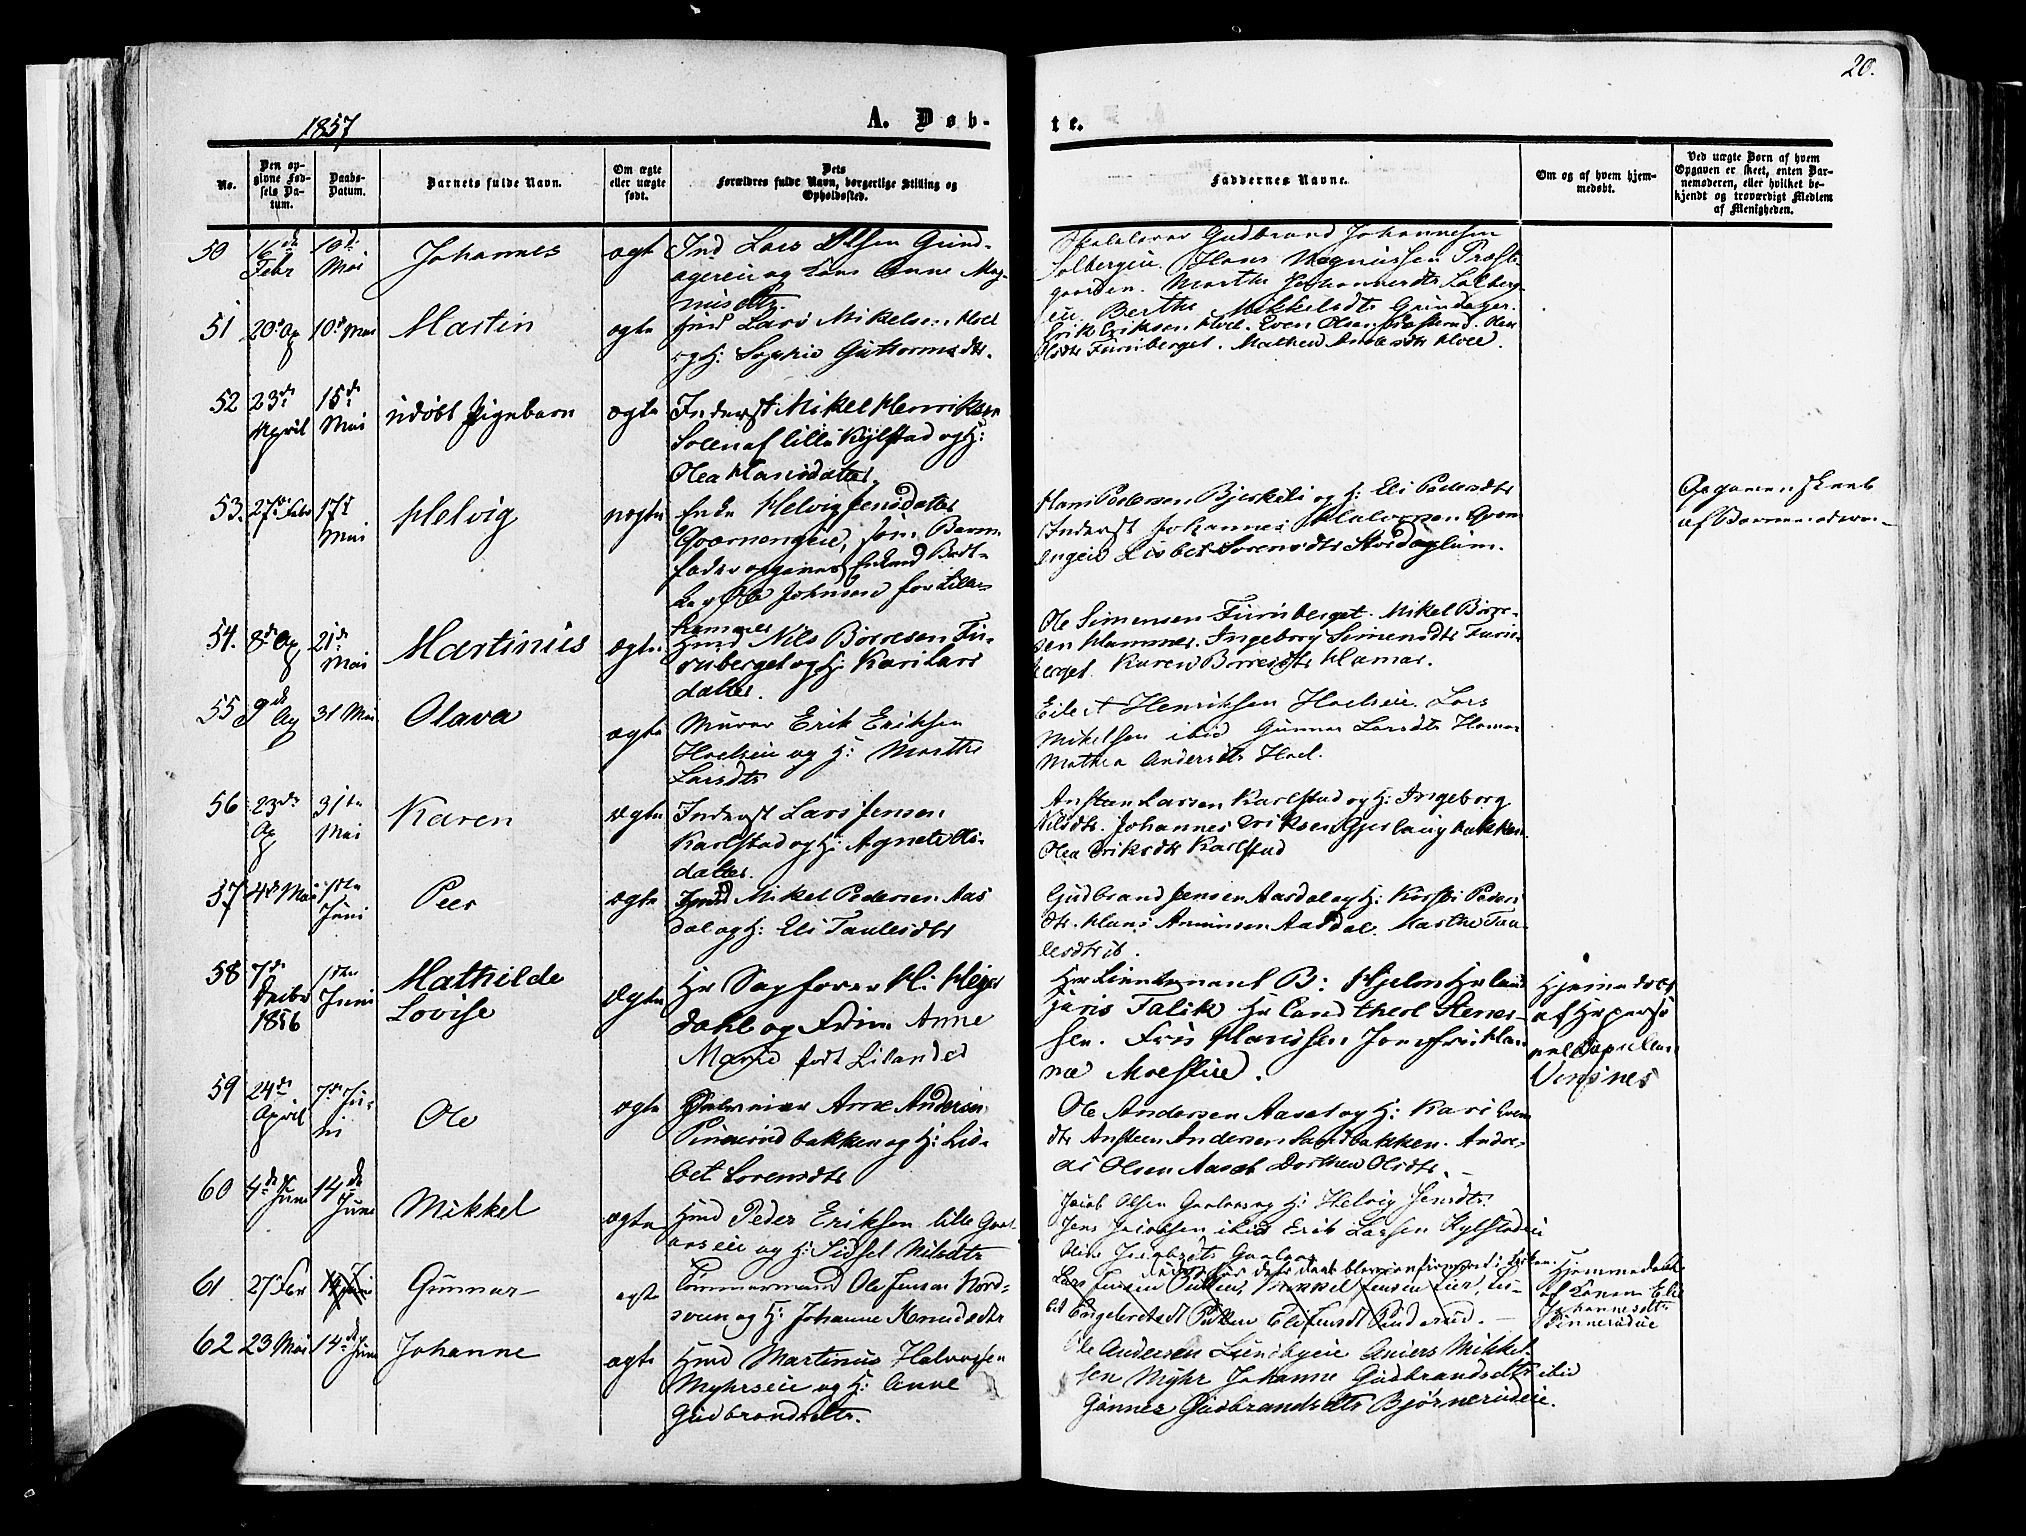 20.
1857
A. Døb-
te.
No.
Den op-
givne Fød-
sels Da-
tum.
Daabs-
Datum.
Barnets fulde Navn.
Om ægte
eller uægte
født.
Dets
Forældres fulde Navn, borgerlige Stilling og
Opholdssted.
Faddernes Navne.
Om og af hvem hjem-
medøbt.
Ved uægte Børn af hvem
Opgaven er skeet, enten Bar-
nemoderen, eller hvilket be-
kjendt og troværdigt Medlem
af Menigheden.
50
16de
Febr
10d:
Mai
Johannes
ægt
Ind Lars Olsen Grind-
agereie og Kone Anne Mag-
nusdtr
Skolelærer Gudbrand Johannesen
Solbergeie. Hans Magnussen Præste-
gaarden. Marthe Johannesdtr Solberg-
eie. Berthe Mikkelsdtr Grindager.
51
20d Ap
10d Mai
Martin
ægte
Huusmd Lars Mikelsen Hoel
og H: Sophie Guttormsdtr.
Erik Eriksen Hoel. Even Olsen
Olsdtr Furuberget. Mathea Andersdtr Hoel.
52
23de
April
15de
Mai
udøbt Pigebarn
ægte
Inderst Mikel Henriksen
Solen af lille Kylstad og H:
Olea Hansdatter.
53.
27de Febr
17d
Mai
Helvig
uægte
Enke Helvig Jensdatter
Goarnengeie, som Barne-
fader opgives Enkemd
Ole Johnsen for Lille-
hammer
Hans Pedersen Bjerkeli og H: Eli Pedersdtr
Inderst Johannes Halvorsen Goarn-
engeie Lisbet Sorensdtr Stordaglum.
Opgaven skeet
af Barnemoderen-
54.
8de Ap
21de
Mai
Martinius
ægte
Huusmd Nils Børresen Fu-
ruberget og H: Kari Lars
datter.
Ole Simensen Furuberget. Mikel Børre-
sen Hammer. Ingeborg Simensdtr Furu-
berget. Karen Børresdtr Hamar.
55
9de
Ap
31 Mai
Olava
ægte
Murer Erik Eriksen
Hoelseie og H: Marthe
Larsdtr
Eilert Henriksen Hoelseie. Lars
Mikelsen ibid Gunnor Larsdtr Hamar
Mathea Andersdtr Hoel.
56
23de
Ap
31te
Mai
Karen
ægte
Inderst Lars Jensen
Karlstad og H: Agnete Ols-
datter.
Ansteen Larsen Karlstad og H: Ingeborg
Nilsdtr. Johannes Eriksen Gjerlaug bakken.
Olea Eriksdtr Karlstad
57
4de Mai
1ste
Juni
Peer
ægte
Huusmd Mikel Pedersen Aas
dal og H: Eli Paulesdtr
Gudbrand Jensen Aasdal og H: Kirsti Peders
dtr. Hans Amunsen Aasdal. Marthe Pau-
lesdtr ib.
58
7de
Decbr
1856
1ste
Juni
Mathilde
Lovise
Ægte
Hr Sagfører H: Meyer
dahl og Frue Anne
Marie født Lilander
Hrr Lieutenant B: Hjelm Hr Cand
juris Falik Hr Cand theol Stener-
sen. Frø Hanssen Jomfru Han-
na Moestue.
Hjemmedøbt
af Hr perso
nel Kapellan
Vensnes
59
24de
April
7de Ju-
ni
Ole
ægte
Arne Andersen
bakken og H: Lis-
bet Lorensdtr
Ole Andersen Aaset og H: Kari Evens
dtr Ansteen Andersen Sandbakken. Andre-
as Olsen Aaset Dorthea Olsdtr.-
60
4de
Juni
14de
Juni
Mikkel
ægte
Huusmd Peder Eriksen lille Goarl
aaseie og H: Sidsel Nilsdtr
Jacob Olsen Goarlaas og H: Helvig Jensdtr.
Jens Jacobsen ibid Erik Larsen Kylstadeie
Oline Jacobsdtr Goarlaas
61
27de Febr
Gunnar-
ægte
Tømmermand Ole Jensen Nord-
sveen og H: Johanne Knudsdtr
Lars Jensen Pukken, Mikkel Jensen Lier, Lis-
bet Engebretsdt Pukken Eli Jensdt Pinderud.-
Hjemmedøbt
af Konen Eli
Johannesdtr
Pinnerudeie
62
23 Mai
14de Juni
Johanne
ægte
Huusmd Martinus Halvorsen
Myhrseie og H: Anne
Gudbrandsdtr.
Ole Andersen Lundbyeie Anders Mikkel-
sen Myhr Johanne Gudbrandsdtr ibid
Gunner Gudbrandsdtr Bjørnerudeie.